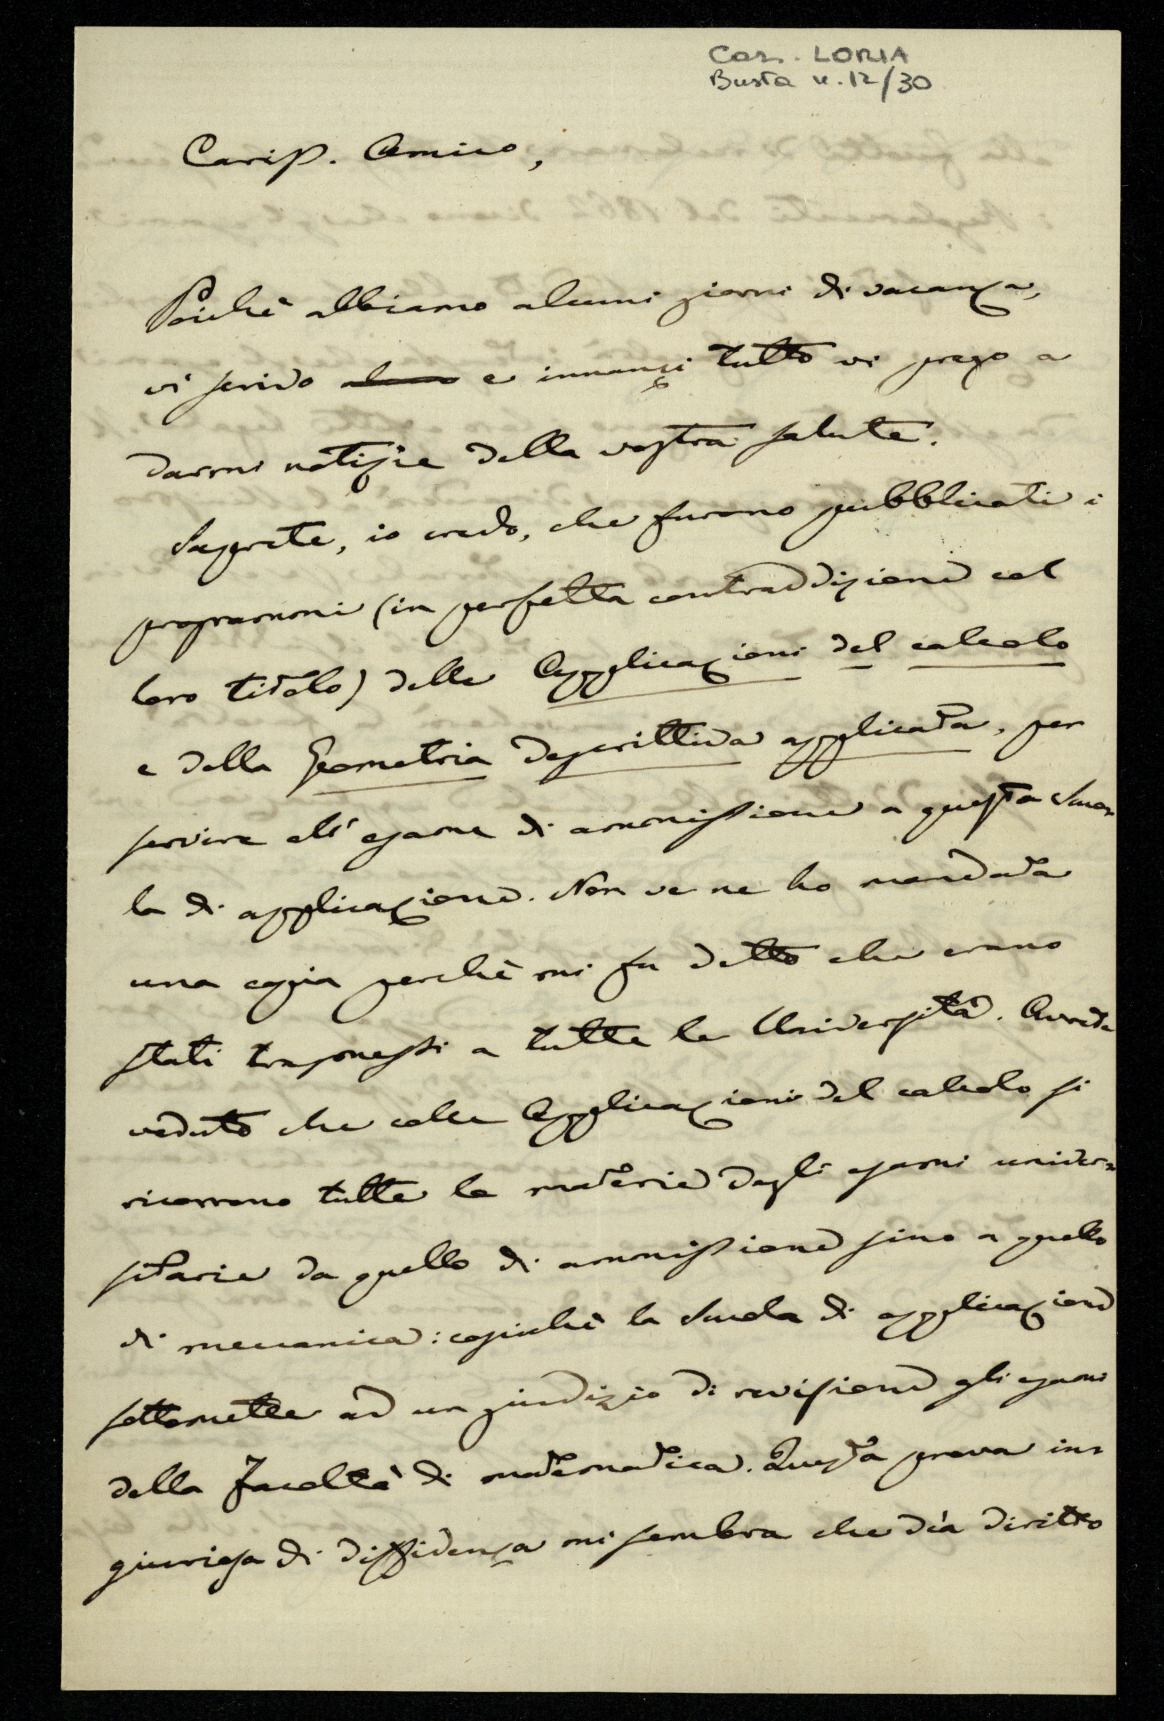 Cas. LORIA
Busta n. 12/30
Cariss. Amico,
Poichè abbiamo alcuni giorni di vacanza,
vi scrivo e innanzi tutto vi prego a
darmi notizie della vostra salute.
Saprete, io credo, che furono pubblicati i
programmi (in perfetta contraddizione col
loro titolo) delle Applicazioni del calcolo
e della Geometria descrittiva applicata, per
servire all'esame di ammissione a questa Scuo-
la di applicazione. Non ve ne ho mandata
una copia perchè mi fu detto che erano
stati trasmessi a tutte le Università. Avrete
veduto che colle Applicazioni del calcolo si
ricorrono tutte le materie degli esami univer-
sitarie da quello di ammissione sino a quello
di meccanica: cosicchè la Scuola di applicazione
sottomette ad un giudizio di revisione gli esami
della facoltà di matematica. Questa prova in-
giuriosa di diffidenza mi sembra che dia diritto